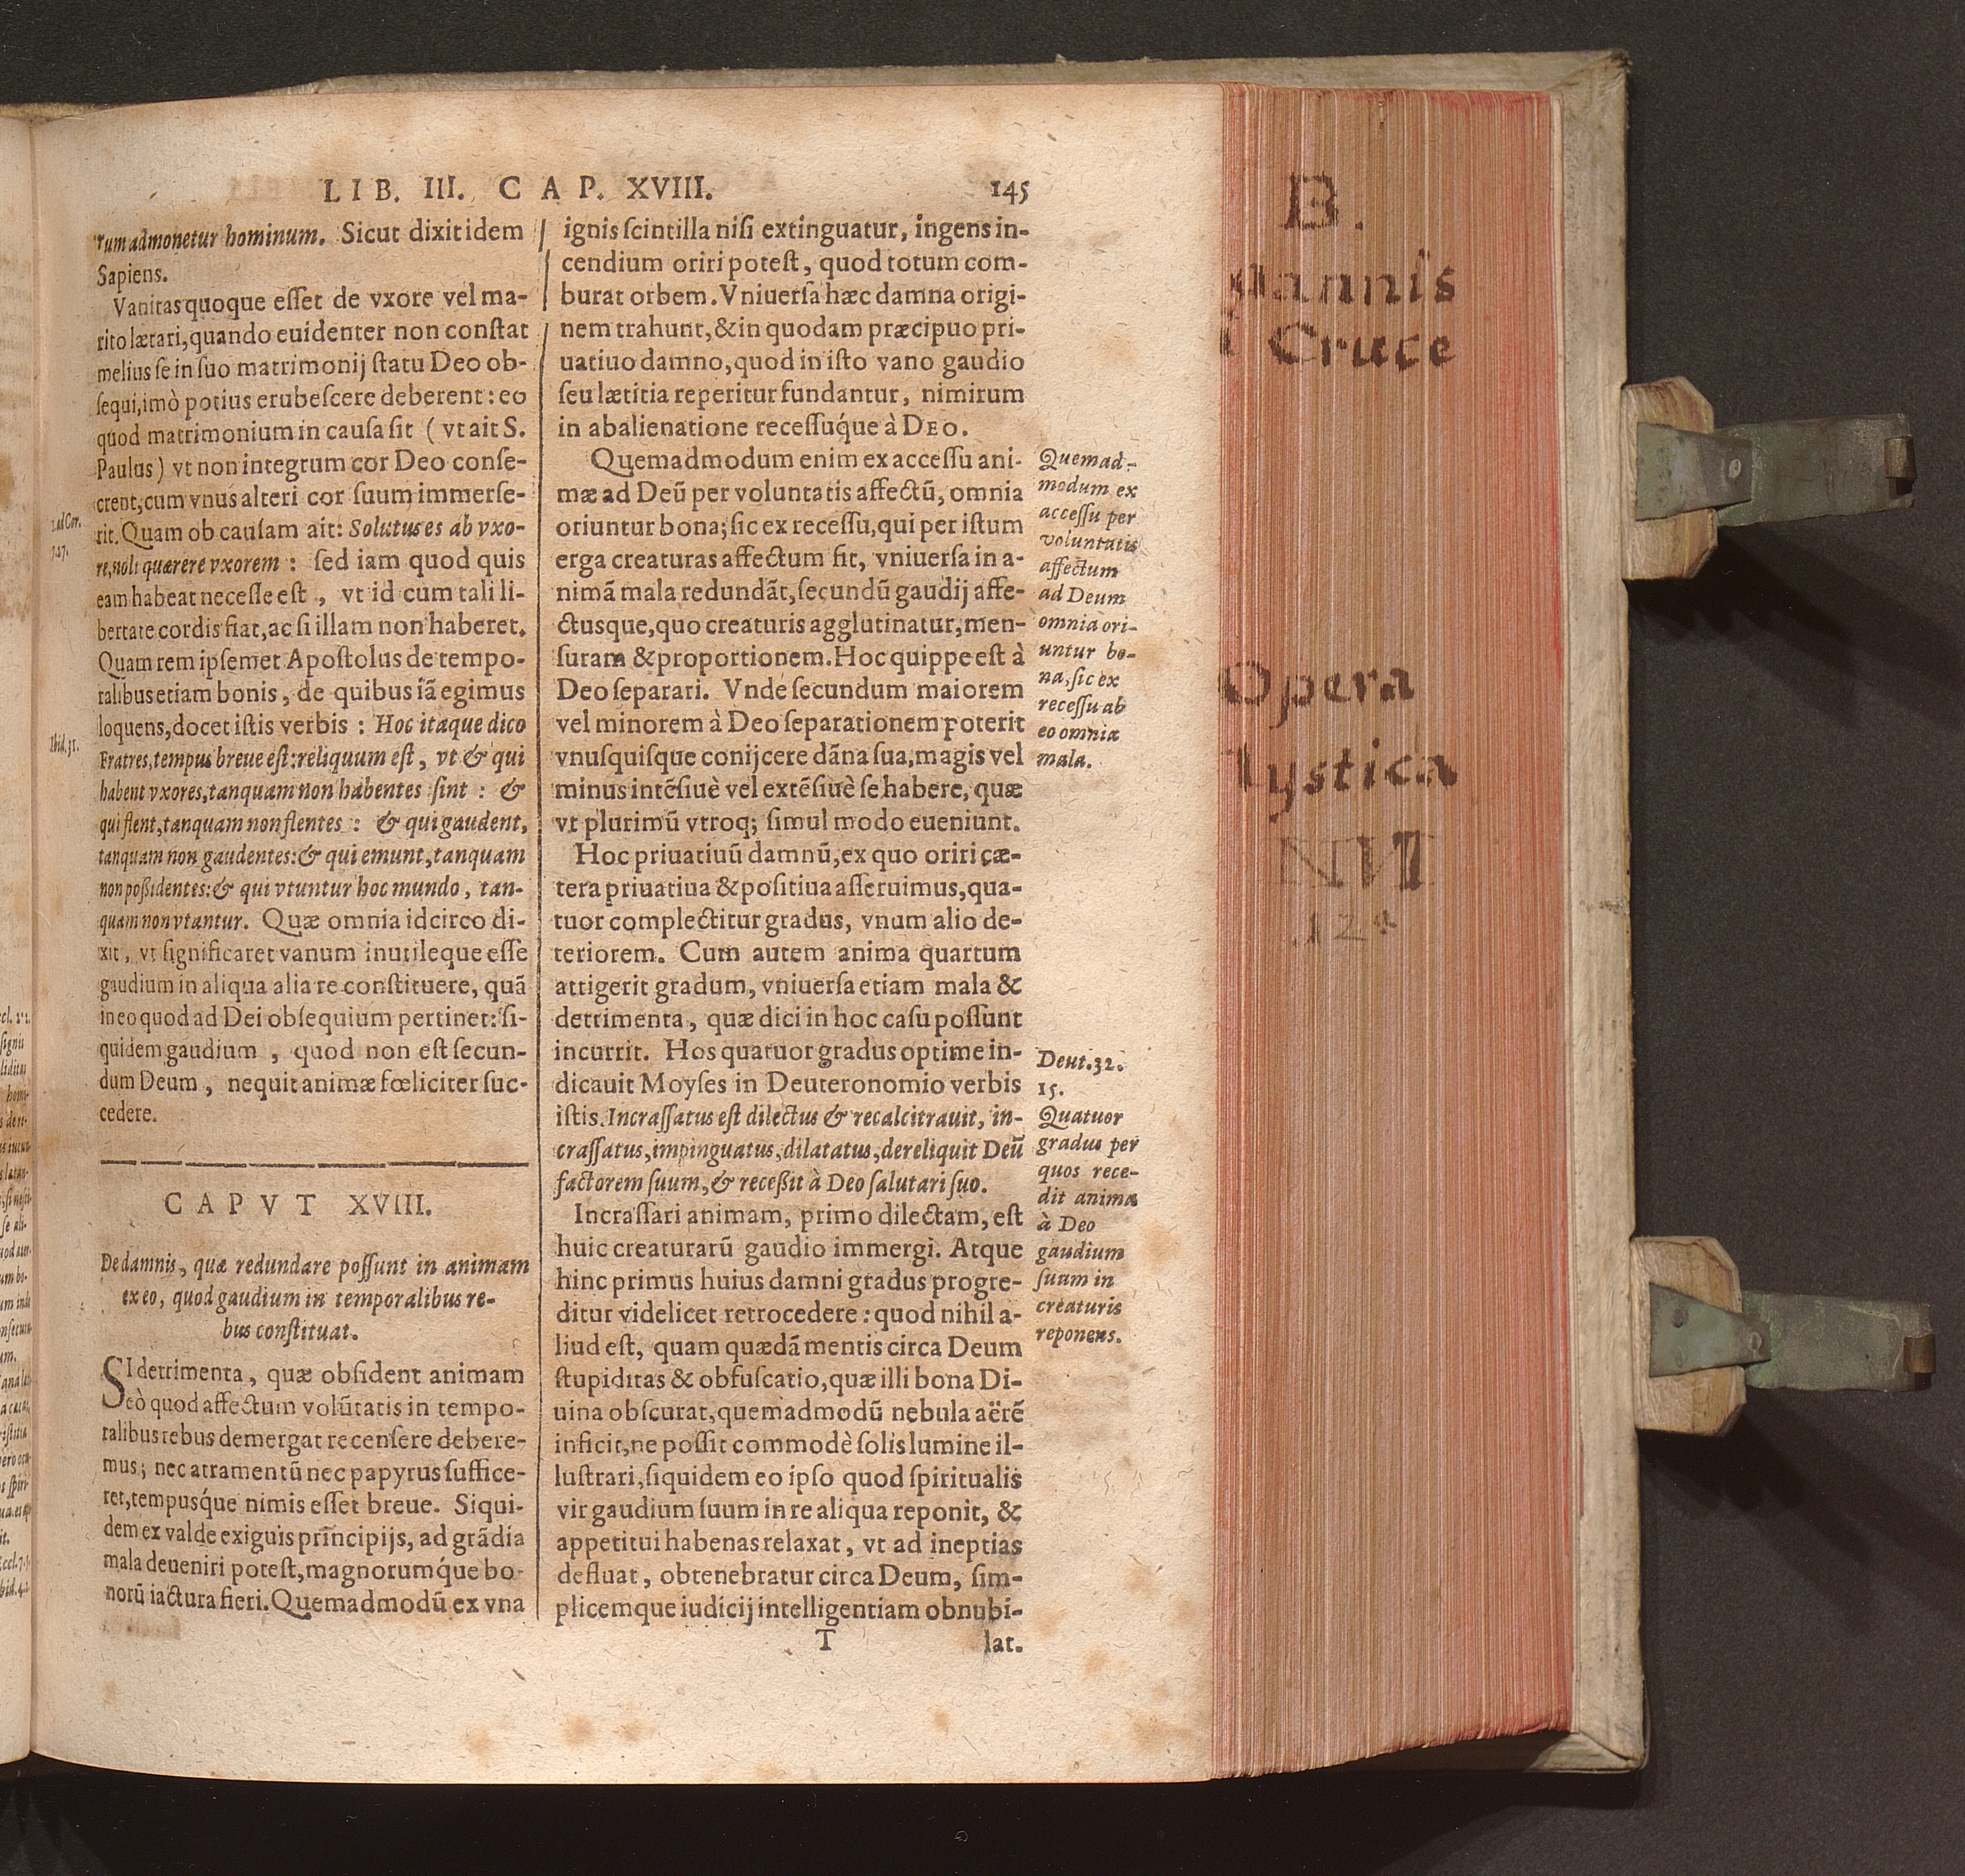 LIB. III. CAP. XVIII. 145
rum admonetur hominum. Sicut dixit idem
Sapiens.
Vanitas quoque eſſet de vxore vel ma-
rito lætari, quando euidenter non conſtat
melius ſe in ſuo matrimonij ſtatu Deo ob-
ſequi, imò potius erubeſcere deberent: eo
quod matrimonium in cauſa ſit (vt ait S.
Paulus) vt non integrum cor Deo conſe-
crent, cum vnus alteri cor ſuum immerſe-
rit. Quam ob cauſam ait: Solutus es ab vxo-
re, noli quærere vxorem: ſed iam quod quis
eam habeat neceſſe eſt, vt id cum tali li-
bertate cordis fiat, ac ſi illam non haberet.
Quam rem ipſemet Apoſtolus de tempo-
ralibus etiam bonis, de quibus iã egimus
loquens, docet iſtis verbis: Hoc itaque dico
Fratres, tempus breue eſt: reliquum eſt, vt & qui
habent vxores, tanquam non habentes ſint: &
qui flent, tanquam non flentes: & qui gaudent,
tanquam non gaudentes: & qui emunt, tanquam
non poßidentes: & qui vtuntur hoc mundo, tan-
quam non vtantur. Quæ omnia idcirco di-
xit, vt ſignificaret vanum inutileque eſſe
gaudium in aliqua alia re conſtituere, quã
in eo quod ad Dei obſequium pertinet: ſi-
quidem gaudium, quod non eſt ſecun-
dum Deum, nequit animæ fœliciter ſuc-
cedere.
CAPVT XVIII.
De damnis, quæ redundare poſſunt in animam
ex eo, quod gaudium in temporalibus re-
bus conſtituat.
SI detrimenta, quæ obſident animam
eò quod affectum volũtatis in tempo-
ralibus rebus demergat recenſere debere-
mus; nec atramentũ nec papyrus ſuffice-
ret, tempuśque nimis eſſet breue. Siqui-
dem ex valde exiguis principijs, ad grãdia
mala deueniri poteſt, magnorumq́ue bo-
norũ iactura fieri. Quemadmodũ ex vna
1. ad Cor.
7.27.
Ibid. 31.
ignis ſcintilla niſi extinguatur, ingens in-
cendium oriri poteſt, quod totum com-
burat orbem. Vniuerſa hæc damna origi-
nem trahunt, & in quodam præcipuo pri-
uatiuo damno, quod in iſto vano gaudio
ſeu lætitia reperitur fundantur, nimirum
in abalienatione receſſuq́ue à DEO.
Quemadmodum enim ex acceſſu ani-
mæ ad Deũ per voluntatis affectũ, omnia
oriuntur bona; ſic ex receſſu, qui per iſtum
erga creaturas affectum fit, vniuerſa in a-
nimã mala redundãt, ſecundũ gaudij affe-
ctusque, quo creaturis agglutinatur, men-
ſuram & proportionem. Hoc quippe eſt à
Deo ſeparari. Vnde ſecundum maiorem
vel minorem à Deo ſeparationem poterit
vnuſquiſque conijcere dãna ſua, magis vel
minus intẽſiuè vel extẽſiuè ſe habere, quæ
vt plurimũ vtroq; ſimul modo eueniunt.
Hoc priuatiuũ damnũ, ex quo oriri cæ-
tera priuatiua & poſitiua aſſeruimus, qua-
tuor complectitur gradus, vnum alio de-
teriorem. Cum autem anima quartum
attigerit gradum, vniuerſa etiam mala &
detrimenta, quæ dici in hoc caſu poſſunt
incurrit. Hos quatuor gradus optime in-
dicauit Moyſes in Deuteronomio verbis
iſtis. Incraſſatus eſt dilectus & recalcitrauit, in-
craſſatus, impinguatus, dilatatus, dereliquit Deũ
factorem ſuum, & receßit à Deo ſalutari ſuo.
Incraſſari animam, primo dilectam, eſt
huic creaturarũ gaudio immergi. Atque
hinc primus huius damni gradus progre-
ditur videlicet retrocedere: quod nihil a-
liud eſt, quam quædã mentis circa Deum
ſtupiditas & obfuſcatio, quæ illi bona Di-
uina obſcurat, quemadmodũ nebula aërẽ
inficit, ne poſſit commodè ſolis lumine il-
luſtrari, ſiquidem eo ipſo quod ſpiritualis
vir gaudium ſuum in re aliqua reponit, &
appetitui habenas relaxat, vt ad ineptias
defluat, obtenebratur circa Deum, ſim-
plicemque iudicij intelligentiam obnubi-
T lat.
Quemad-
modum ex
acceſſu per
voluntatis
affectum
ad Deum
omnia ori-
untur bo-
na, ſic ex
receſſu ab
eo omnia
mala.
Deut. 32.
15.
Quatuor
gradus per
quos rece-
dit anima
à Deo
gaudium
ſuum in
creaturis
reponens.
B.
annis
Cruce
Opera
ystica